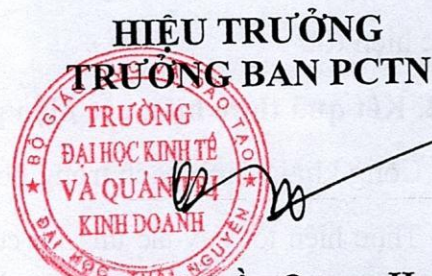 HIỆU TRƯỞNG
TRƯỞNG BAN PCTN
BỘ GIÁO DỤC VÀ ĐÀO TẠO
TRƯỜNG
ĐẠI HỌC KINH TẾ
VÀ QUẢN TRỊ
KINH DOANH
ĐẠI HỌC THÁI NGUYÊN